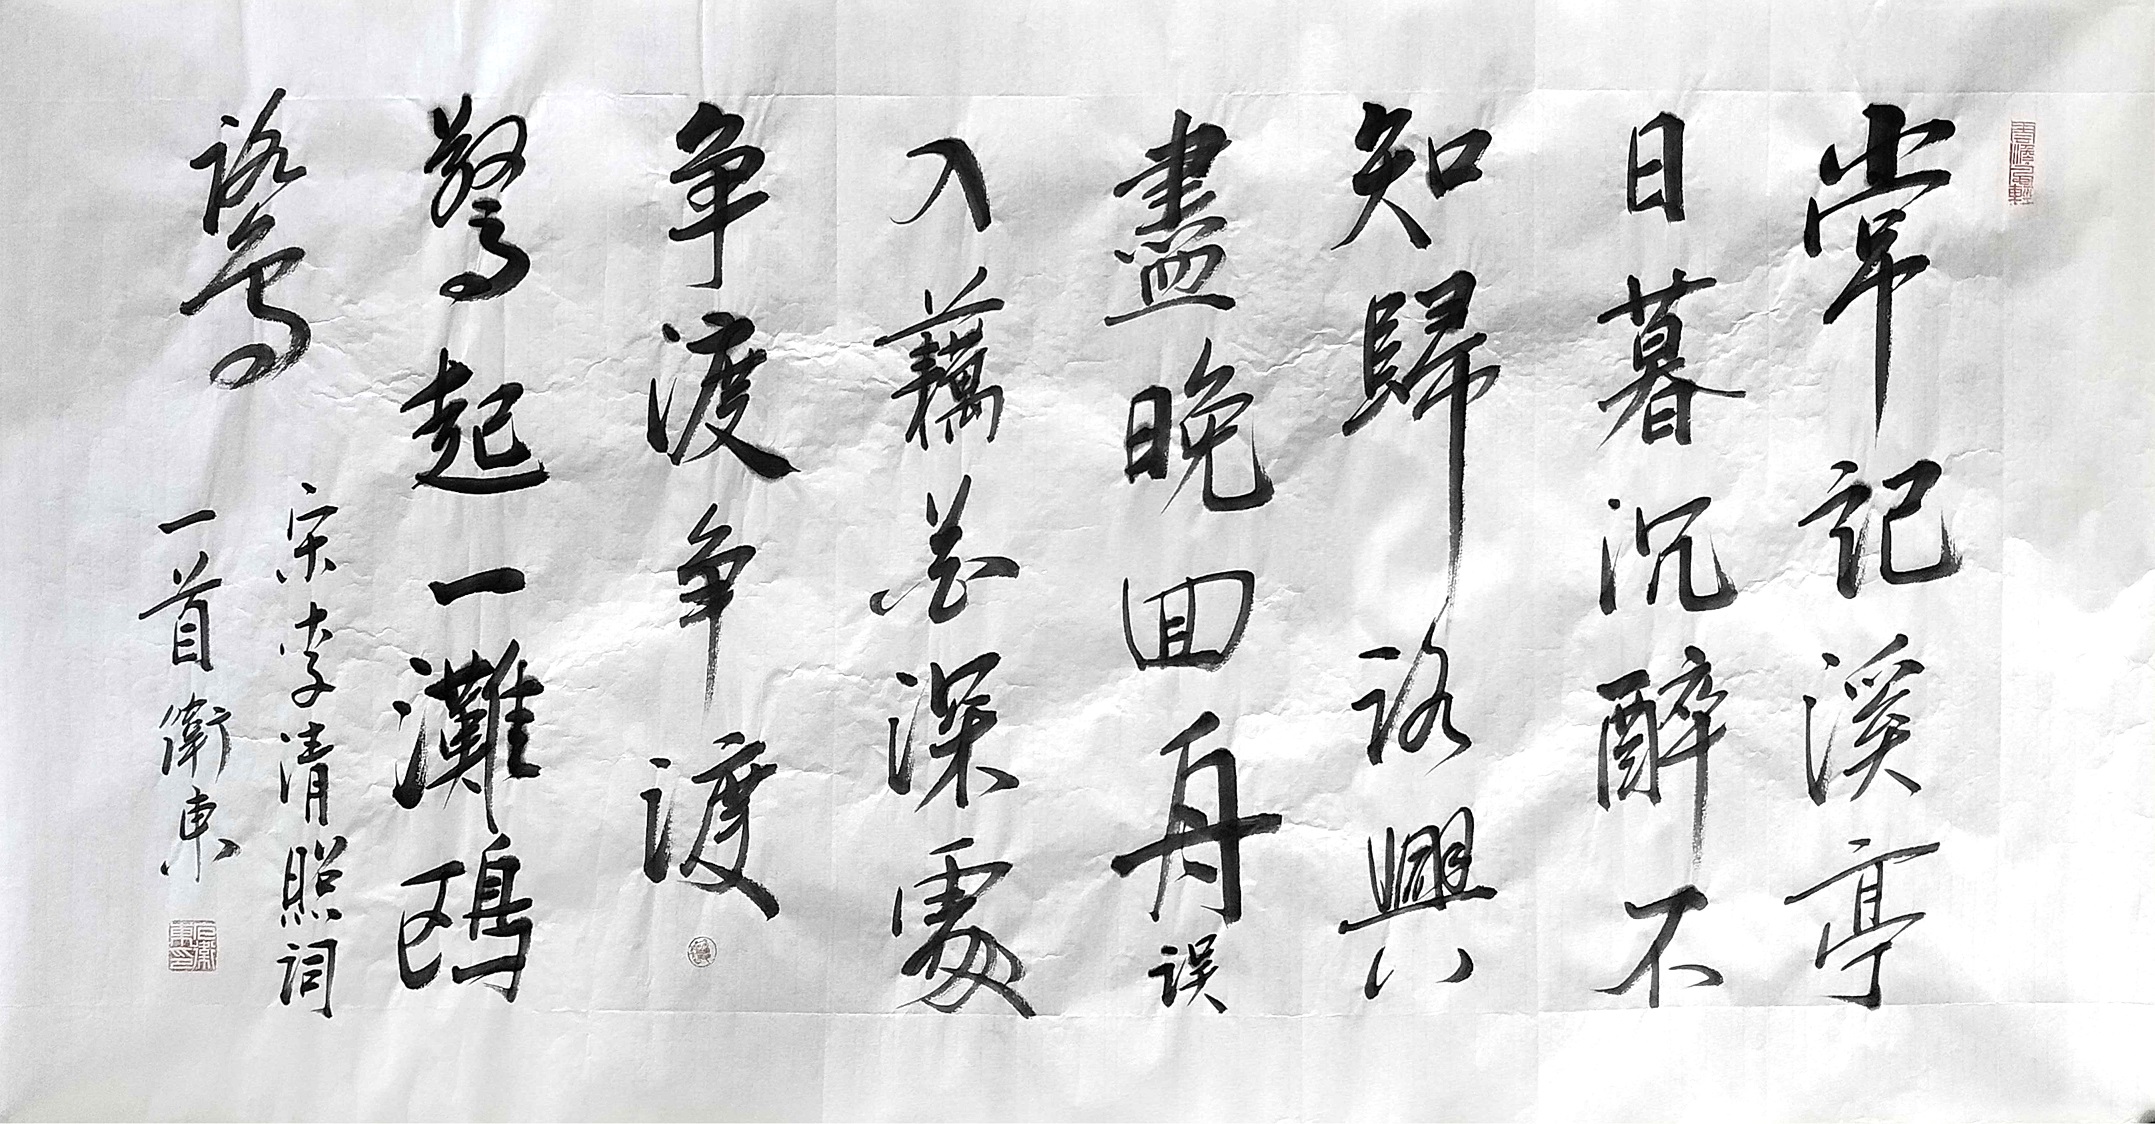 常記溪亭
日暮沉醉不
知歸路興
盡晚回舟误
入藕花深處
争渡争渡
驚起一灘鷗
鷺
宋李清照詞
一首衛東